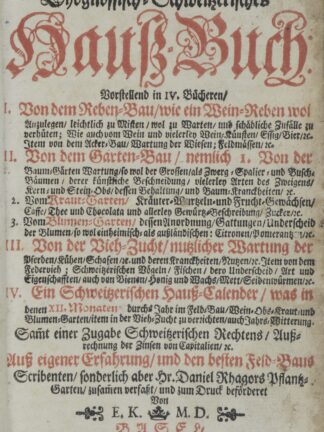 Eydgnössisch-Schweitzerisches
Hauß-Buch.
Vorstellend in IV. Bücheren/
I. Von dem Reben-Bau/wie ein Wein-Reben wol
Anzulegen/ leichtlich zu Misten/wol zu Warten/und schädliche Zufälle zu
verhüten; Wie auch vom Wein und vielerley Wein-Künsten/ Essig/Bier/ꝛc.
Item von dem Acker-Bau/ Wartung der Wiesen; Feldmäusen/ꝛc.
II. Von dem Garten-Bau/ nemlich 1. Von der
Baum-Gärten Wartung/so wol der Grossen/als Zwerg-Spalier- und Busch-
Bäumen/ derer künstliche Beschneidung/ vielerley Arten des Zweigens/
Kern-und Stein-Obs/dessen Behaltung/und Baum-Kranckheiten/ ꝛc.
2. Vom Kraut-Garten/ Kräuter-Wurtzeln-und Frucht-Gewächsen/
Caffe/Thee und Chocolata und allerley Gewürtz-Beschreibung/Zucker/ꝛc.
3. Vom Blumen-Garten/ dessen Anordnung/ Gattungen/ Underscheide
der Blumen/so wol einheimisch-als ausländischen: Citronen/Pomerantz/ ꝛc.
III. Von der Vieh-Zucht/ nutzlicher Wartung der
Pferden/Kühen/Schafen/ꝛc. und deren Kranckheiten/Nutzen/ꝛc. Item von dem
Federvieh; Schweitzerischen Vögeln/ Fischen/ dero Underscheid/ Art und
Eigenschafften/ auch von Bienen/Honig und Wachs/Mett/Seidenwürmen/ꝛc.
IV. Ein Schweitzerischen Hauß-Calender/ was in
denen XII. Monaten/ durchs Jahr im Feld-Bau/Wein-Obs-Kraut-und
Blumen-Garten/item in der Vieh-Zucht zu verrichten/auch Jahrs-Witterung.
Samt einer Zugabe Schweitzerischen Rechtens/ Auß-
rechnung der Zinsen von Capitalien/ ꝛc.
Auß eigener Erfahrung/ und den besten Feld-Baus
Scribenten/ sonderlich aber Hr. Daniel Rhagors Pflantz-
Garten/ zusamen verfaßt/ und zum Druck befördert
Von
E. K. M. D.
BASEL,